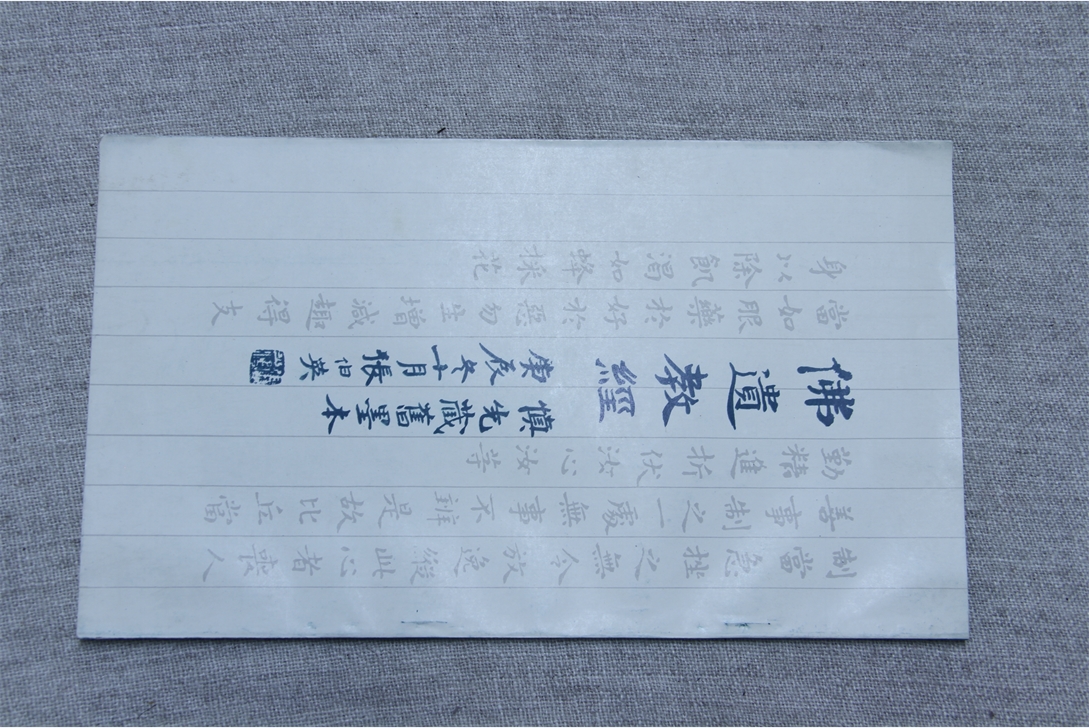 制當急挫之無令放逸縱此心者喪人
善事制之一處無事不辦是故比丘當
勤精進折伏汝心汝等
佛遺教經
慎先藏舊墨本
庚辰冬十月張伯英
當如服藥於好於惡勿生增減趣得支
身以除飢渴如蜂採花